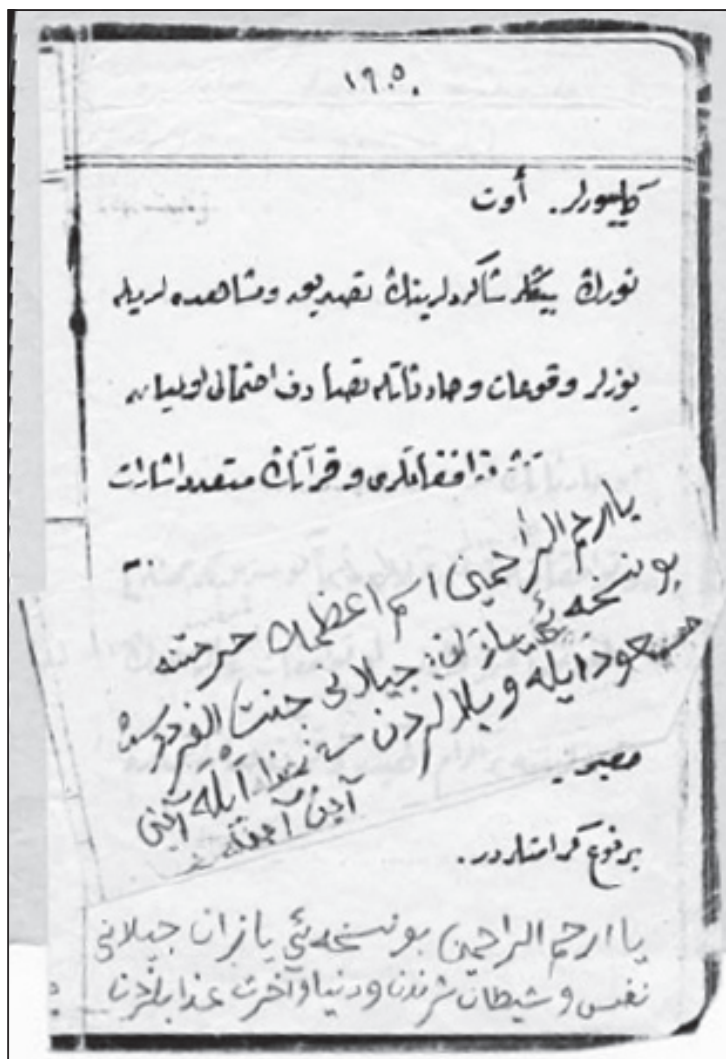 ١٩٥٠
كليبورلر. أوت
نورڭ بيڭلر شاكردلرينڭ تصديق و مشاهده لريله
يوزلر وقوعات و حادثاتله تصادف احتمالى اولميان
توافقاتلرى و قرآنڭ متعدد اشارات
يا ارحم الراحمين اسم اعظمڭ حرمتنه
بو نسخه يى يازان جيلانى جنت الفردوسده
مسعود ايله و بلالردن ايله آمين
آمين آمين
بر نوع كرامتلردر.
يا ارحم الراحمين بو نسخه ئى يازان جيلانى
نفس و شيطان شرندن و دنيا و آخرت عذابلرندن